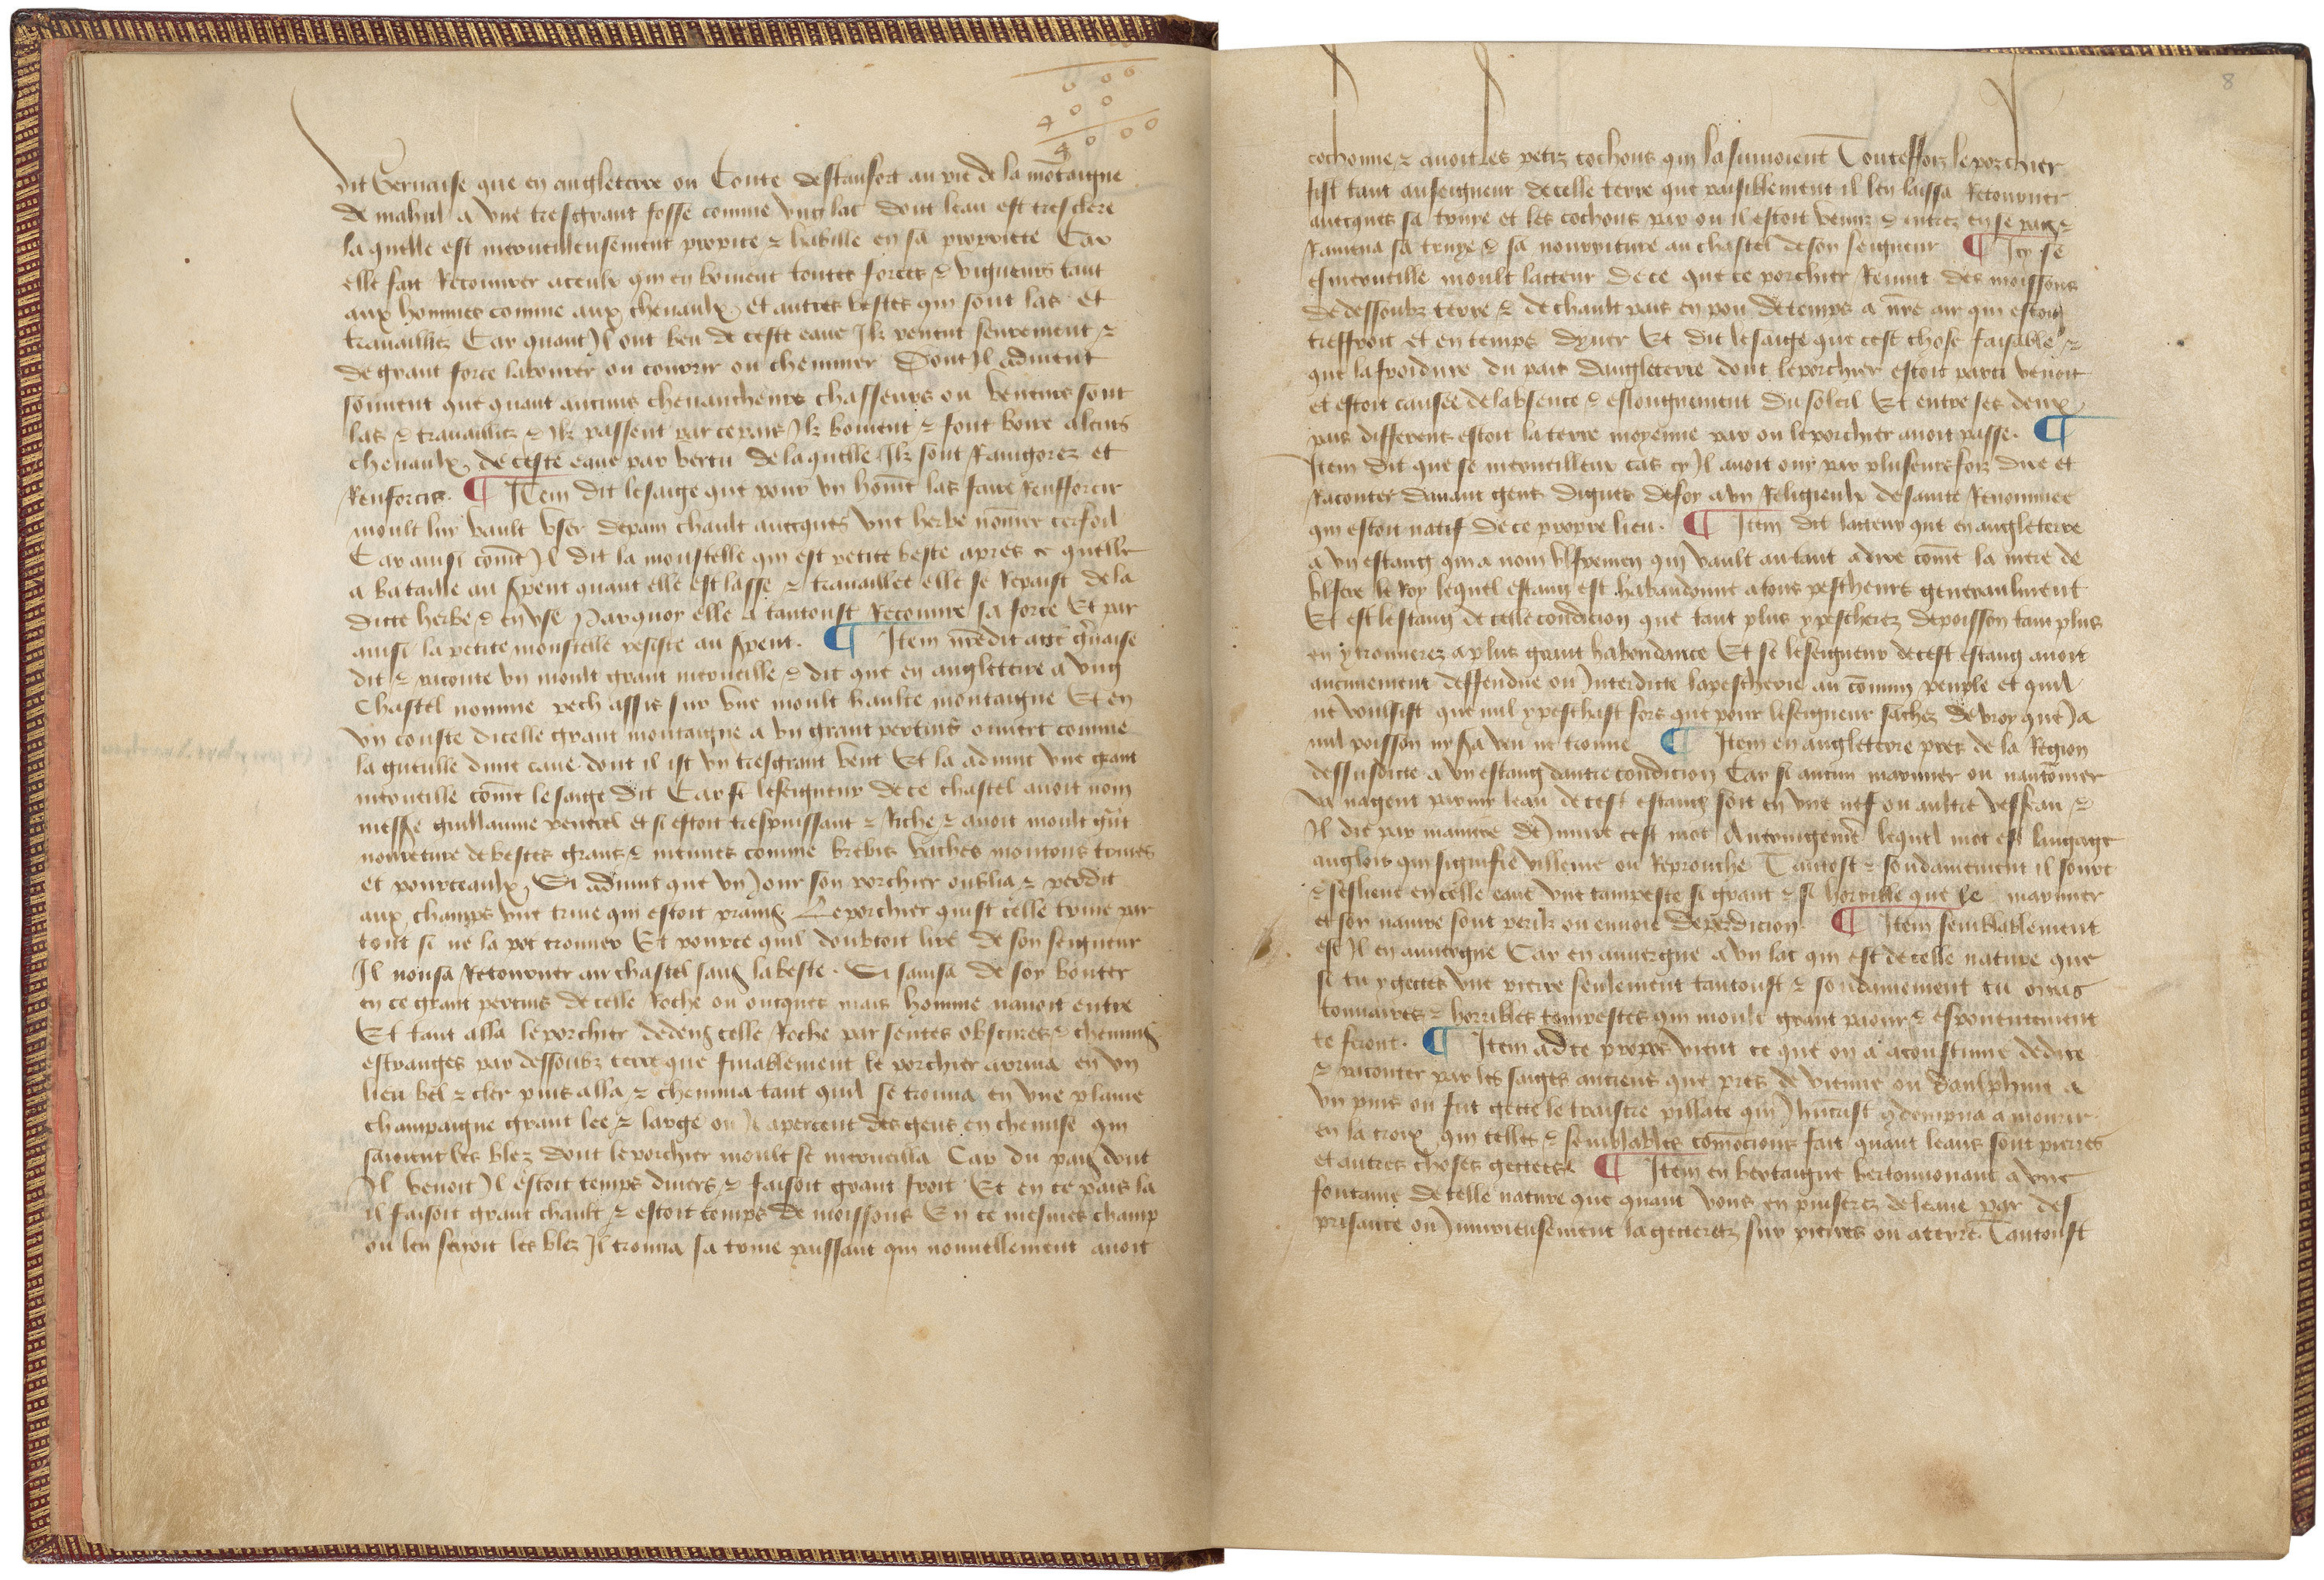 dit Gervaise que en angleterre ou Conte destanfort au pie de la mōtaigne
de mahul a une tresgrant fosse comme ung lac dont leau est tresclere
la quelle est merveilleusement propice ⁊ habille en sa propriete Car
elle fait Recouvrer a ceulx qui en boivent toutes forces ⁊ vigueurs tant
aux hommes comme aux chevaulx et autres bestes qui sont las et
travaillez Car quant Il ont beu de ceste eaue Ilz peuent seurement ⁊
de grant force labourer ou courir ou cheminer Dont Il advient
souvent que quant aucuns chevaucheurs chasseurs ou veneurs sont
las ⁊ travaillez ⁊ Ilz passent par ce pais Ilz boivent ⁊ font boire a leurs
chevaulx de ceste eaue par vertu de laquelle Ilz sont Ravigorez et
Renforcis. ¶ Item dit le saige que pour un hom̄e las faire Renfforcir
moult luy vault user de pain chault avecques une herbe nom̄ee cerfoil
Car ainsi com̄e Il dit la moustelle qui est petite beste apres ce quelle
a bataille au s̄pent quant elle est lasse ⁊ travaillee elle se Repaist de la
dicte herbe ⁊ en use Parquoy elle a tantoust Recouvre sa force Et par
ainsi la petite moustelle resiste au s̄pent. ¶ Item
dit ⁊ raconte un moult grant merveille ⁊ dit que en angleterre a ung
Chastel nomme pech assis sur une moult haulte montaigne Et en
un couste dicelle grant montaigne a un grant pertuis ouvert comme
la gueulle dune cave dont il ist un tresgrant vent Et la advint une grant
merveille com̄e le saige dit Car si le seigneur de ce chastel avoit nom
mess̄e guillaume peverel et si estoit trespuissant ⁊ Riche ⁊ avoit moult gr̄t
nourreture de bestes grans ⁊ menues comme brebis vaches moutons truies
et pourceaulx Si advint que un Jour son porchier oublia ⁊ perdit
aux champs une truie qui estoit prains Le porchier quist celle truie par
tout si ne la pot trouver Et pource quil doubtoit lire de son seigneur
Il nousa Retourner au chastel sans la beste. Si savisa de soy bouter
en ce grant pertuis de celle Roche ou oncques mais homme navoit entre
Et tant alla le porchier dedens celle Roche par sentes obscures ⁊ chemins
estranges par dessoubz terre que finablement le porchier arriva en un
lieu bel ⁊ cler puis alla ⁊ chemina tant quil se trouva en une plaine
champaigne grant lee ⁊ large ou Il apercent des gens en chemise qui
saioient les blez dont le porchier moult se merveilla Car du pais dont
Il venoit Il estoit temps divers ⁊ faisoit grant froit Et en ce pais la
il faisoit grant chault ⁊ estoit temps de moissons En ce mesmes champ
ou len seyoit les blez Il trouva sa truie paissant qui nouvellement avoit
cochonne ⁊ avoit les petiz cochons qui la suivoient Touteffoiz le porchier
fist tant au seigneur de celle terre que paisiblement il len laissa Retourner
avecques sa truye et les cochons par ou il estoit venu ⁊ entrez en se pais ⁊
Ramena sa truye ⁊ sa nourriture au chastel de son seigneur ¶ Icy se
esmerveille moult lacteur de ce que ce porchier Revint des moissons
de dessoubz terre ⁊ de chault pais en pou de temps a n̄re air qui estoit
treffroit et en temps dyver Et dit le saige que cest chose faisable ⁊
que la froidure du pais dangleterre dont le porchier estoit parti venoit
et estoit causee de labsence ⁊ eslongnement du soleil Et entre ses deux
pais different estoit la terre moyenne par ou le porchier avoit passe. ¶
Item dit que se merveilleux cas cy Il avoit ouy par pluseurs foiz dire et
Raconter davant gens dignes de foy a un Religieulx de saincte Renommee
qui estoit natif de ce propre lieu. ¶ Item dit lacteur que en angleterre
a un estang qui a nom ulfremen qui vault autant a dire com̄e la mere de
ulfere le Roy lequel estang est habandonne a tous pescheurs generaulment
Et est lestang de celle condicion que tant plus y pescherez de poisson tant plus
en y trouverez a plus grant habondance Et se le seigneur de cest estang avoit
aucunement deffendue ou Interdicte la pescherie au com̄un peuple et quil
ne voulsist que nul y peschast fors que pour le seigneur sachez de vray que Ja
nul poisson ny sa veu ne trouve ¶ Item en angleterre pres de la Region
dessusdicte a un estang dautre condicion Car si aucun marinier ou nautonnier
va nagent parmy leau de cest estang soit en une nef ou aultre vesseau ⁊
Il dit par maniere de Injure cest mot lequel mot est langaige
anglois qui signifie villenie ou Reprouche Tantost ⁊ soudainement il sourt
⁊ seslieve en celle eaue une tampeste si grant ⁊ si horrible que le marinier
et son navire sont periz ou en voie de perdicion. ¶ Item semblablement
est Il en auvergne Car en auvergne a un lac qui est de telle nature que
si tu y gectes une pierre seulement tantoust ⁊ soudainement tu orras
tonnairres ⁊ horribles tempestes qui moult grant paour ⁊ espoventement
te feront. ¶ Item ad ce propos vient ce que on a acoustume de dire
⁊ raconter par les saiges anciens que pres de vienne ou daulphine a
un puis ou fut gette le traistre pillate qui Jhūcrist condempna a mourir
en la croix qui telles ⁊ semblables com̄ocions fait quant leans sont pierres
et autres choses gectees. ¶ Item en bretaigne bertonnonant a une
fontaine de telle nature que quant vous en puiserez de leaue par des
prisance ou Injurieusement la gecterez sur pierres ou a terre. Tantoust